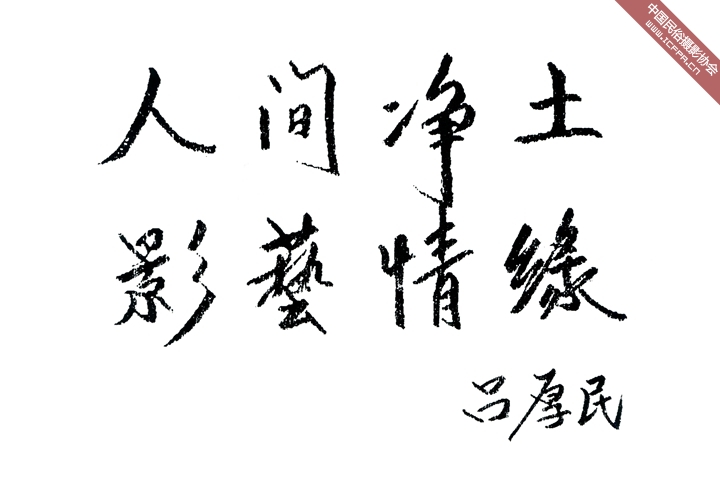 人间净土
影藝情缘
吕厚民
中国民俗摄影协会
www.icfpa.cn